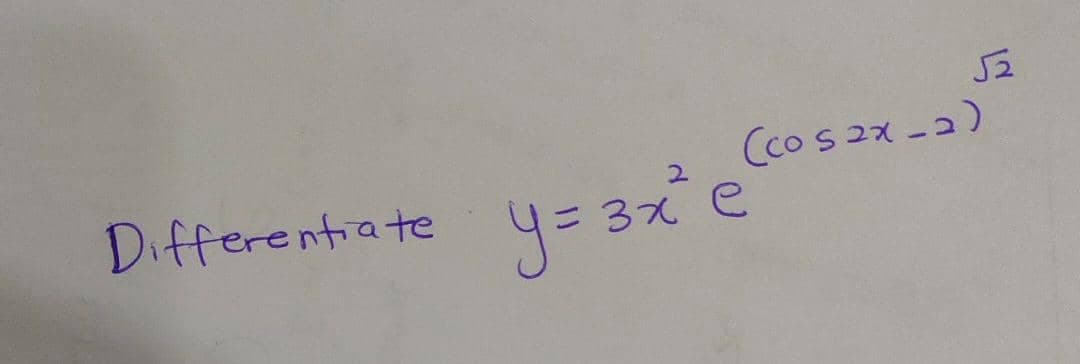 Differentiate y = 3x² e^(cos 2x - 2)^√2